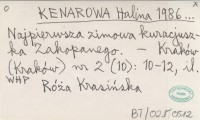 KENAROWA Halina 1986...
Najpierwsza zimowa kuracjusz-
ka Zakopanego. – Kraków
(Kraków) nr 2 (10): 10-12, il.
WHP
Róża Krasińska
BT/028.0512